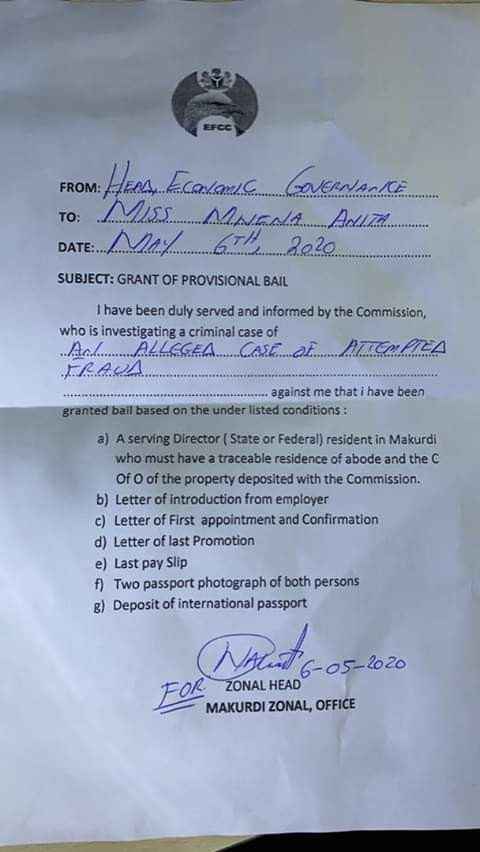 EFCC
FROM: HEAD, ECONOMIC GOVERNANCE
TO: MISS MNENA ANITA
DATE: MAY 6TH, 2020
SUBJECT: GRANT OF PROVISIONAL BAIL
I have been duly served and informed by the Commission,
who is investigating a criminal case of
AN ALLEGED CASE OF ATTEMPTED
FRAUD
against me that i have been
granted bail based on the under listed conditions :
a) A serving Director ( State or Federal) resident in Makurdi
who must have a traceable residence of abode and the C
Of O of the property deposited with the Commission.
b) Letter of introduction from employer
c) Letter of First appointment and Confirmation
d) Letter of last Promotion
e) Last pay Slip
f) Two passport photograph of both persons
g) Deposit of international passport
6-05-2020
FOR ZONAL HEAD
MAKURDI ZONAL, OFFICE